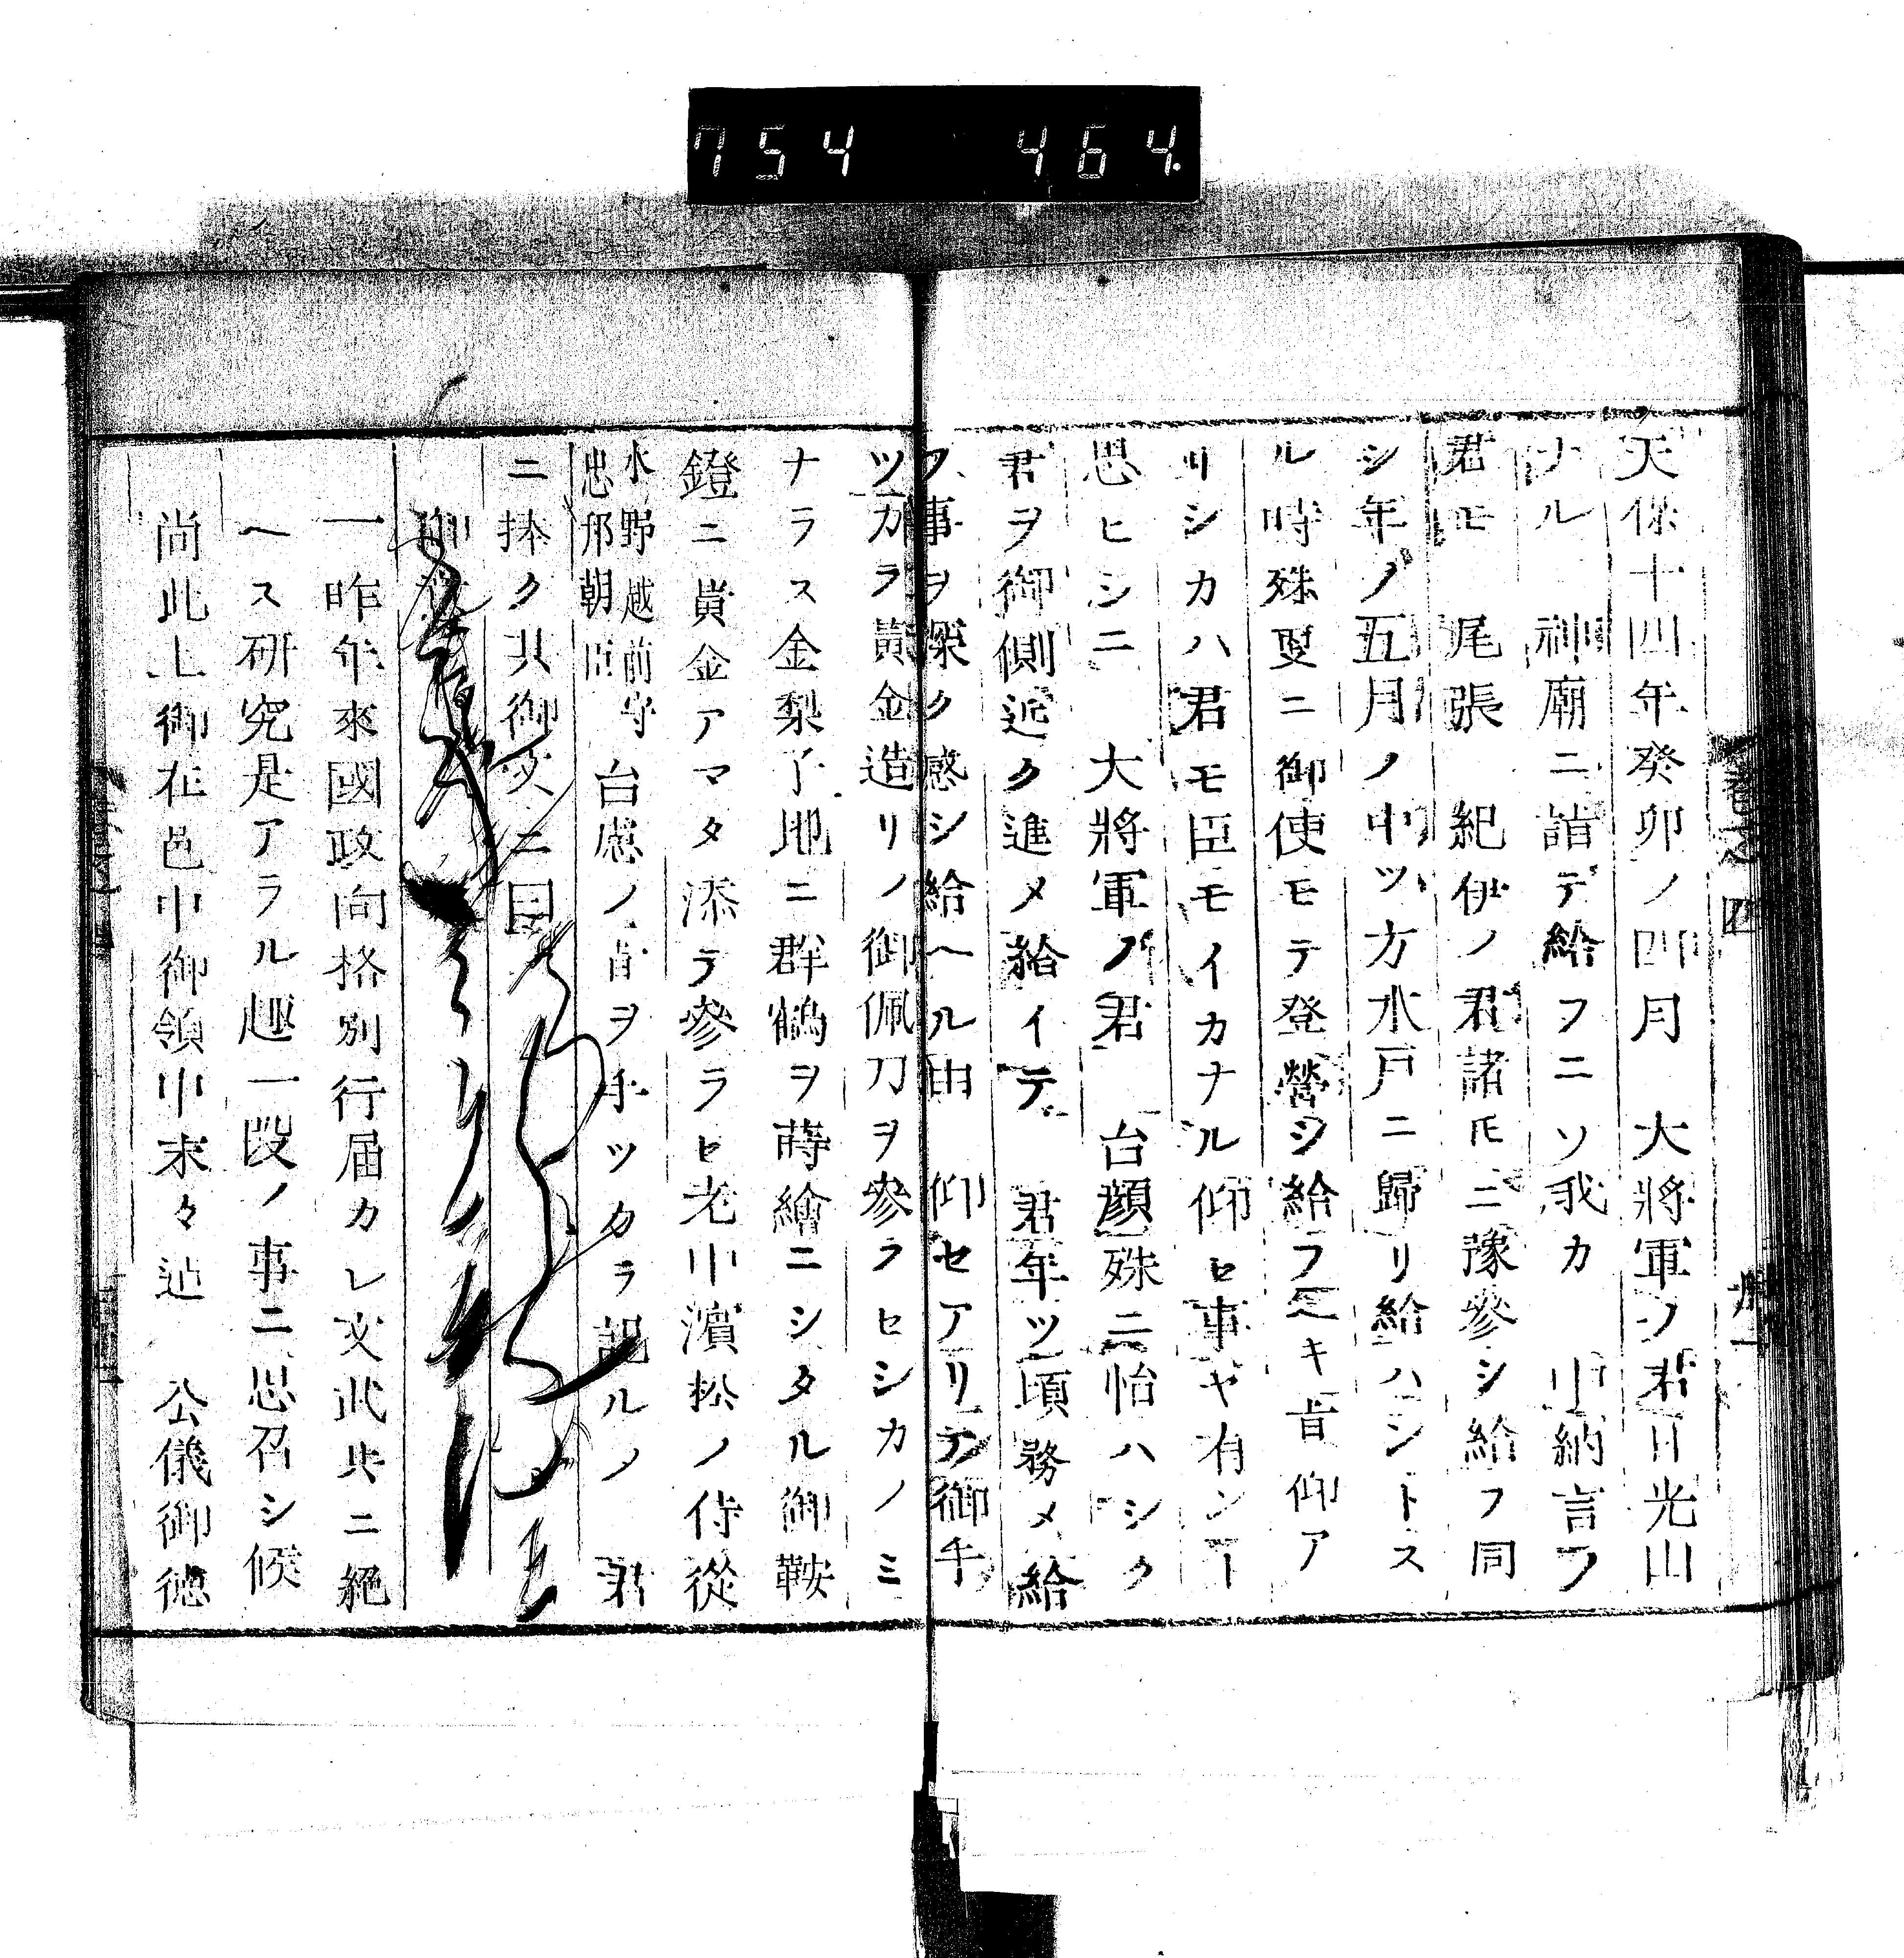 754 464
天保十四年癸卯ノ四月　大將軍ノ君日光山
ナル　神廟ニ詣デ給フニソ我カ　中納言ノ
君モ　尾張　紀伊ノ君諸モニ豫參シ給フ同
シ年ノ五月ノ中ツ方水戸ニ歸リ給ハントス
ル時殊更ニ御使モテ登營シ給フヘキ旨仰ア
リシカハ君モ臣モイカナル仰セ事ヤ有ント
思ヒシニ　大將軍ノ君　台顔殊ニ怡ハシク
君ヲ御側近ク進メ給イテ　君年ツ頃務メ給
フ事ヲ深ク感シ給ヘル由　仰セアリテ御手
ツカラ黄金造リノ御佩刀ヲ參ラセシカノミ
ナラス金梨子地ニ群鶴ヲ蒔繪ニシタル御鞍
鐙ニ黄金アマタ添テ參ラセ老中濱松ノ侍從
水野越前守
忠邦朝臣
台慮ノ旨ヲ手ツカラ記ルノ　君
ニ捧ク其御文ニ曰
御
一昨年來國政向格別行届カレ文武共ニ絶
ヘス研究是アラル趣一段ノ事ニ思召シ候
尚此上御在邑中御領中末々迠　公儀御徳
巻之四